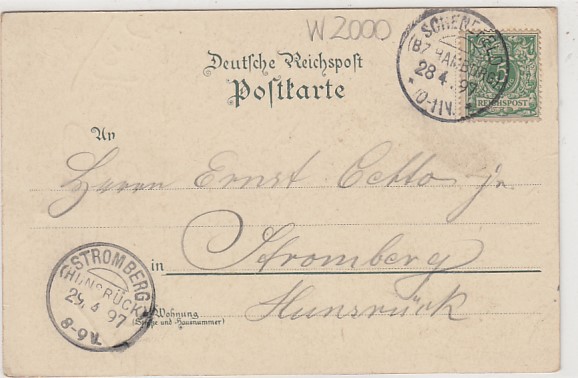 W2000
Deutsche Reichspost
Postkarte
SCHENEFELD
(BZ. HAMBURG)
28 4. 97
10-11V.
REICHSPOST
An
Herrn Ernst Cetto jr.
in Stromberg
Hunsrück
Wohnung
(Straße und Hausnummer)
STROMBERG
(HUNSRÜCK)
29. 4 97
8-9V.